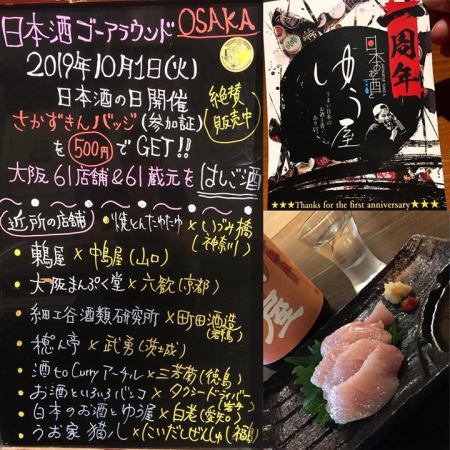 日本酒ゴーアラウンド OSAKA
2019年10月1日(火)
日本酒の日開催
さかずきんバッジ(参加証)
絶賛
販売中
を500円でGET!!
大阪61店舗&61蔵元をはしご酒
近所の店舗
・焼とんたゆたゆ×いづみ橋
(神奈川)
・鶫屋×中島屋(山口)
・大阪まんぷく堂×六歓(京都)
・細工谷酒類研究所×町田酒造
(群馬)
・穂ん亭×武勇(茨城)
・酒to Curry アーチル×三芳菊(徳島)
・お酒といろいろバンコ×タクシードライバー
(岩手)
・日本のお酒とゆう屋×白老(愛知)
・うお家 猫ノ×にいだしぜんしゅ(福島)
一周年
日本のお酒と
ゆう屋
うまい日本の
お酒と肴、
あります。
★★★Thanks for the first anniversary★★★
屋